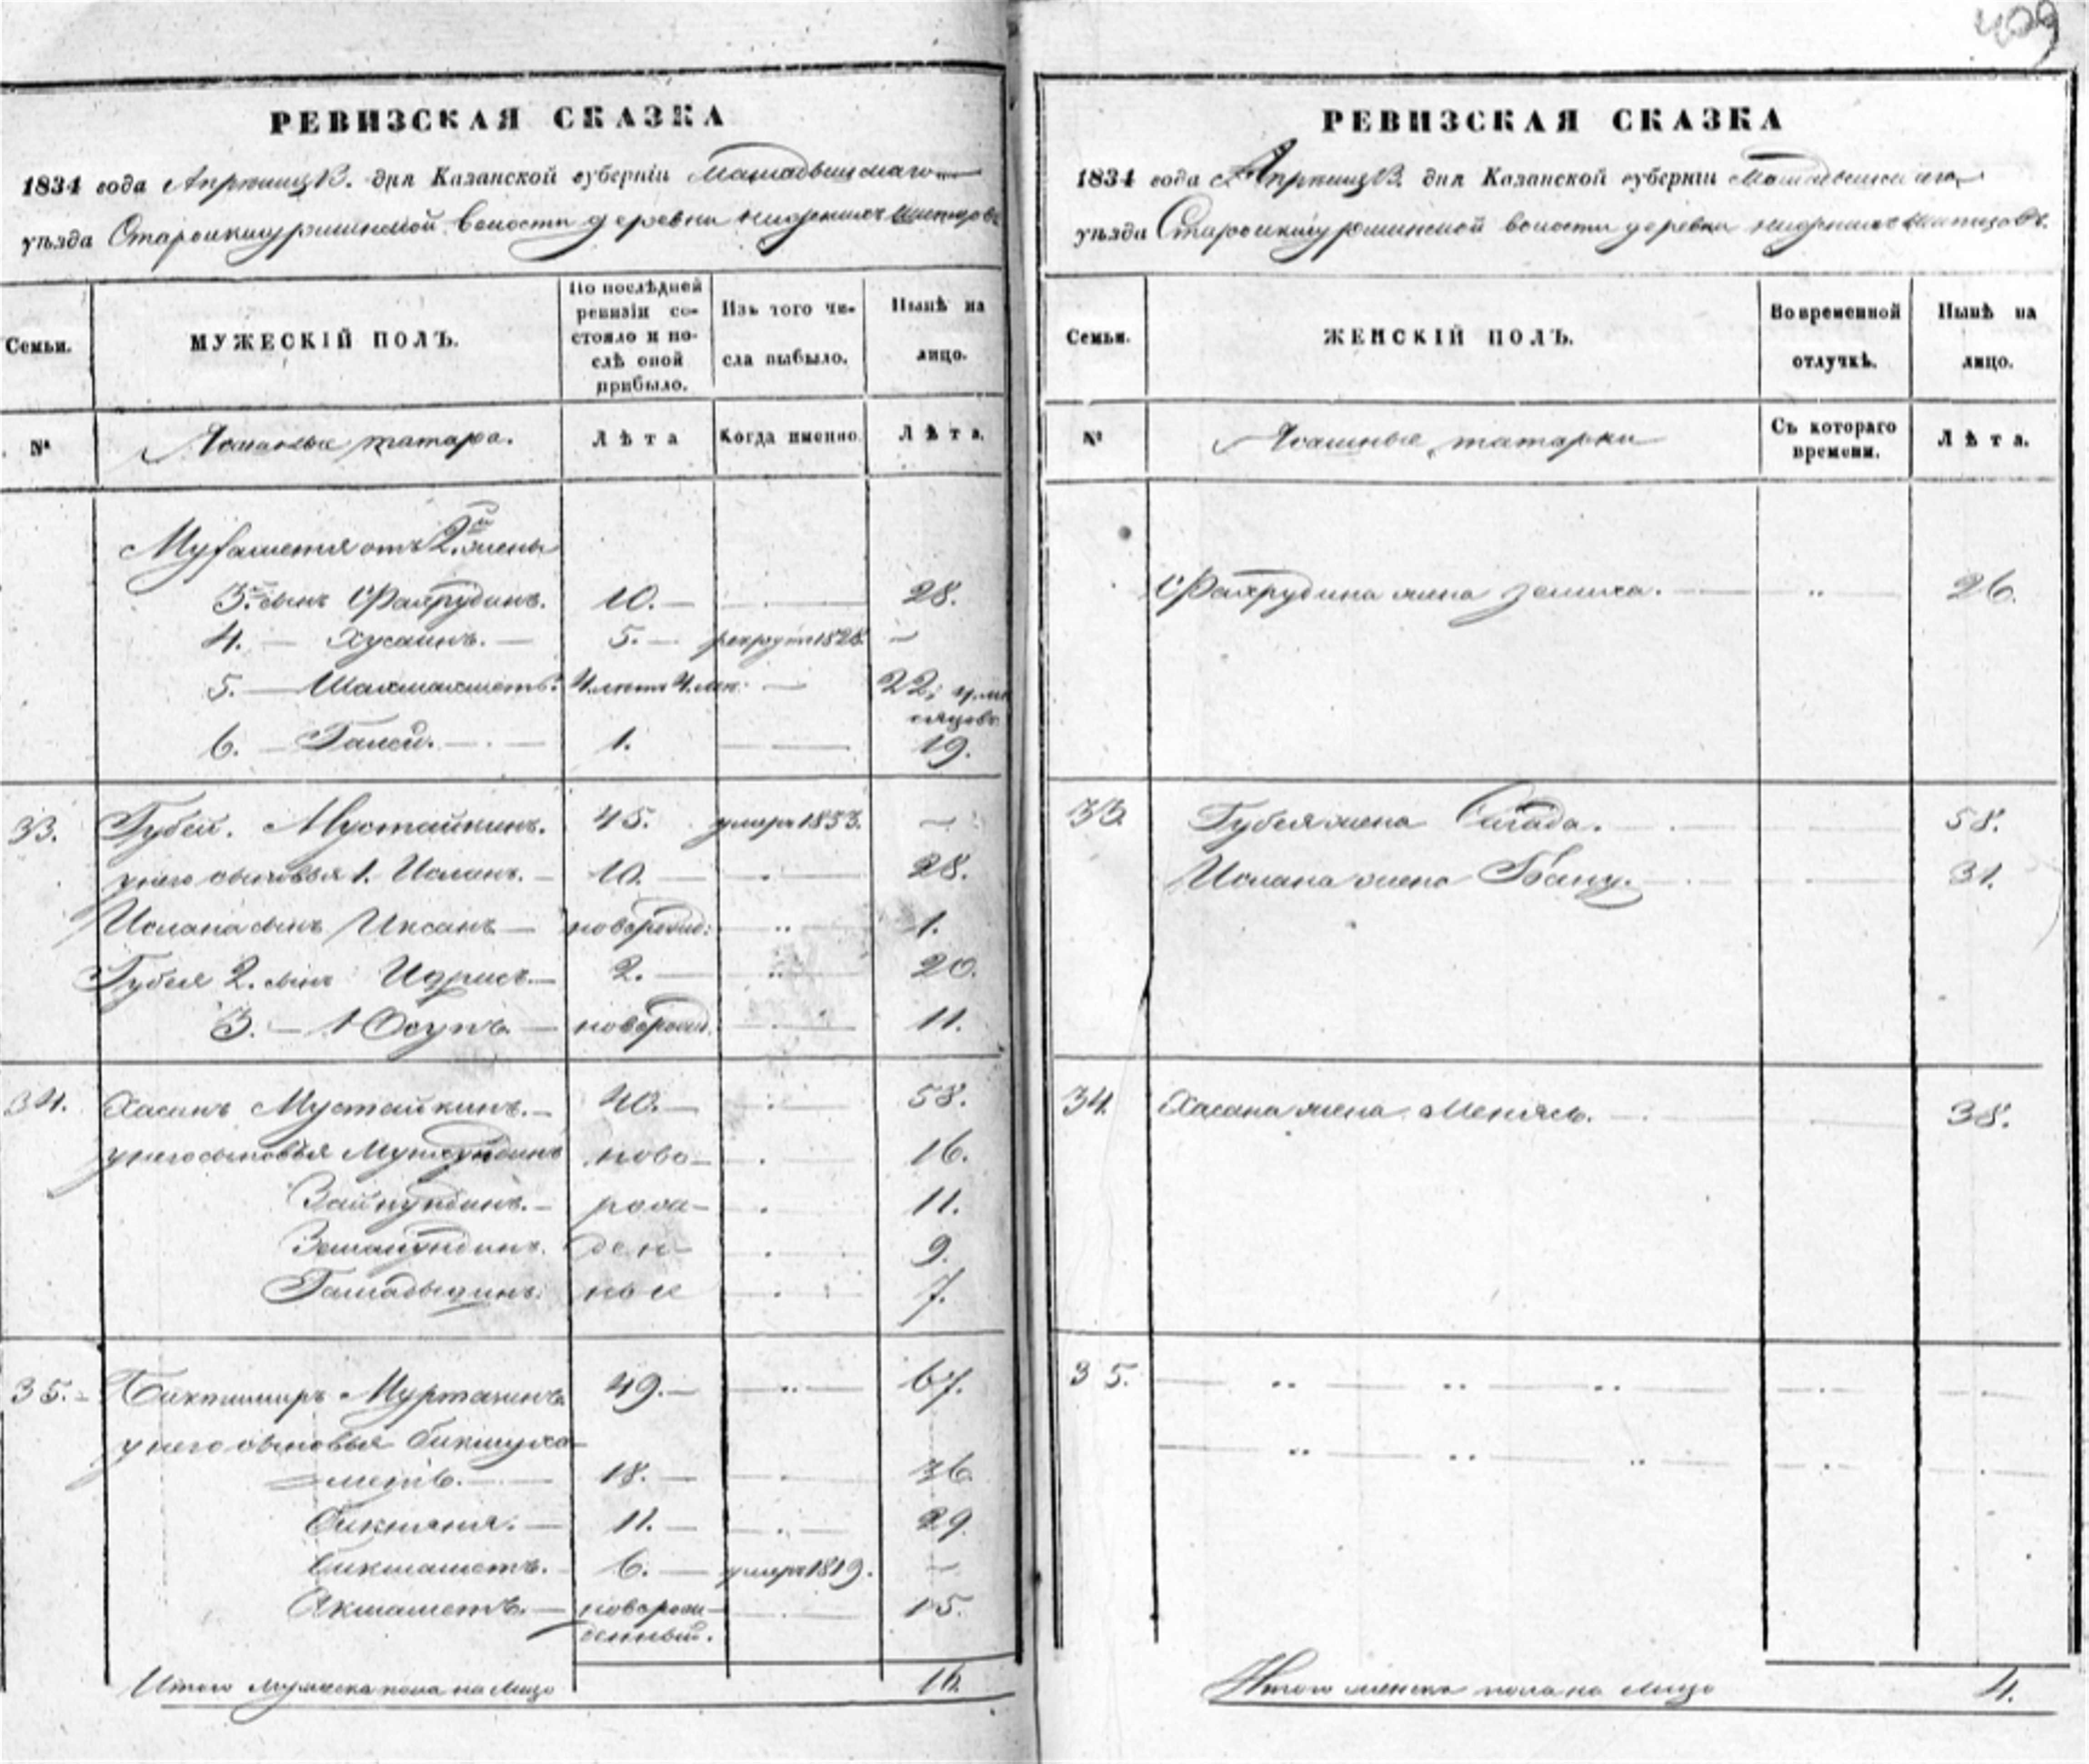 409
РЕВИЗСКАЯ СКАЗКА
1834 года Апреля 13. дня Казанской губерніи Мамадышскаго
уѣзда волости деревни
Семьи.
МУЖЕСКІЙ ПОЛЪ.
По послѣдней ревизіи состояло и послѣ оной прибыло.
Изъ того числа выбыло.
Нынѣ на лицо.
№
Ясашные татара.
Лѣта
Когда именно.
Лѣта.
от 2й жены
3. сынъ Фахрудинъ. 10. — 28.
4. — Хусаинъ. — 5. — рекрут —
5. — Шахмахметъ. 4 лѣтъ 4 мѣс: — 22, 4 мѣсяцовъ
6. — Галей. — 1. — 19.
33. Губей. Мустайкинъ. 45. умеръ 1833. —
у него сыновья 1. Исланъ. — 10. — 28.
Ислана сынъ Иксанъ — новорожд: 1.
Губея 2. сынъ Идрисъ — 2. — 20.
3. — Юсупъ — новорожд. 11.
34. Хасанъ Мустайкинъ. — 40. — 58.
у него сыновья ново- 16.
Зайнундинъ. — рож- 11.
ден- 9.
ные 7.
35. — Биктимиръ Муртазинъ 49. — 67.
у него сыновья Бикмуха-
метъ. — 18. — 36
11. — 29.
Бикмаметъ. 6. — умеръ 1819. —
Акмаметъ. — новорож-
денный. 15.
Итого мужеска пола на лицо 16.
РЕВИЗСКАЯ СКАЗКА
1834 года Апреля 13. дня Казанской губерніи Мамадышскаго
уѣзда волости деревни
Семьи.
ЖЕНСКІЙ ПОЛЪ.
Во временной отлучкѣ.
Нынѣ на лицо.
№
Ясашные татарки
Съ котораго времени.
Лѣта.
Фахрудина жена Зелиха. — 26.
33. Губея жена Сагада. 58.
Ислана жена Бану. 31.
34. Хасана жена 38.
35.
Итого женска пола на лицо 4.